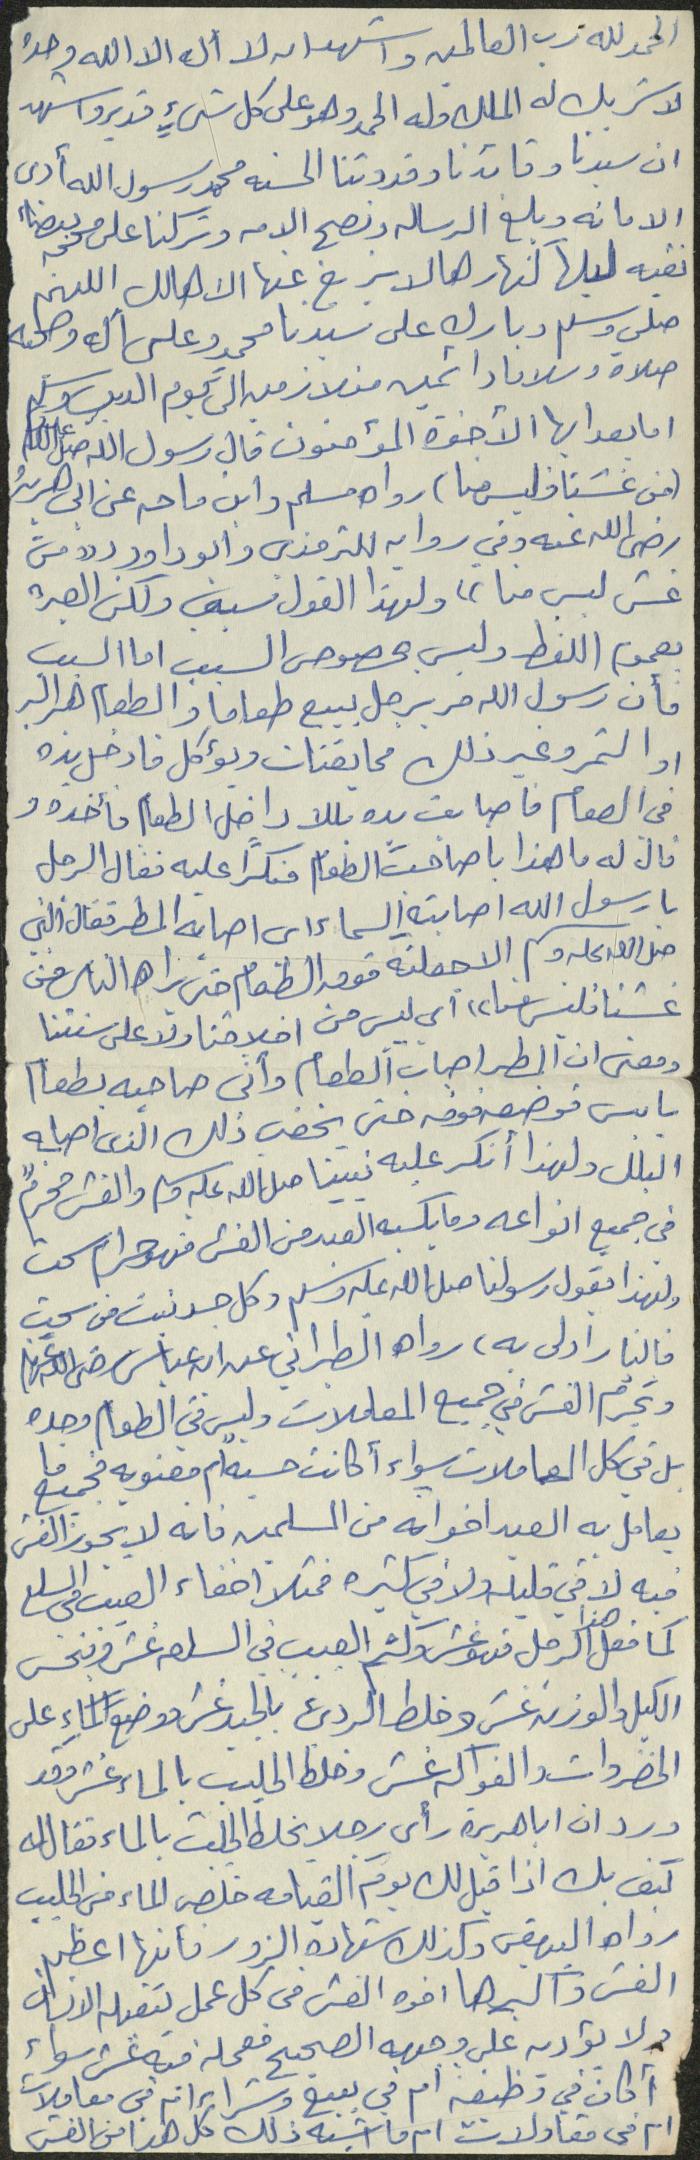 الحمد لله رب العالمين واشهد ان لا أله الا الله وحده
لا شريك له الملك وله الحمد وهو على كل شيءٍ قدير واشهد
ان سيدنا وقائدنا وقدوتنا الحسنه محمد رسول الله أدى
الامانه وبلغ الرساله ونصح الامه وتركنا على محجة بيضاء
نقيه ليلها كنهارها لا يزيغ عنها الا هالك اللهم
صلي وسلم وبارك على سيدنا محمدٍ وعلى أله وصحبه
صلاة وسلاما دائمين متلازمين الى يوم الدين وسلم
اما بعد ايها الأخوة المؤمنون قال رسول الله صلى الله عليه وسلم
(من غشنا فليس منا) رواه مسلم وابن ماجه عن ابي هريرة
رضي الله عنه وفي روايه للترمذي وابو داود ((من
غش ليس منا)) ولهذا القول سبب ولكن العبره
بعموم اللفظ وليس بخصوص السبب اما السبب
فأن رسول الله مر برجل يبيع طعاما والطعام هو البر
او التمر وغير ذلك مما يقتات ويؤكل فادخل يده
في الطعام فاصابت يده بللا داخل الطعام فأخذه و
قال له ما هذا يا صاحب الطعام منكرًا عليه فقال الرجل
يا رسول الله اصابته السماء اي اصابه المطر فقال النبي
صلى الله عليه وسلم الا جعلته فوق الطعام حتى يراه الناس من
غشنا فليس منا)) أي ليس من اخلاقنا ولا على سنتنا
ومعنى ان المطر اصاب الطعام وأتى صاحبه بطعام
يابس فوضعه فوقه حتى يخفي ذلك الذي اصابه
البلل ولهذا أنكر عليه نبينا صلى الله عليه وسلم والغش محرمٌ
في جميع انواعه وما يكسبه العبد من الغش فهو حرام سحت
ولهذا يقول رسولنا صلى الله عليه وسلم وكل جسد نبت من سحتٍ
فالنار أولى به) رواه الطبراني عن ابن عباس رضي الله عنهما
وتحرم الغش في جميع المعاملات وليس في الطعام وحده
بل في كل المعاملات سواء أكانت حسيةً ام معنويه فجميع ما
يعامل به العبد اخوانه من المسلمين فانه لا يجوز الغش
فيه لا في قليله ولا في كثيره فمثلا اخفاء العيب في السلع
كما فعل هذا الرجل فهو غش وكتم العيب في السلعه غش وبخس
الكيل والوزن غش وخلط الردئ بالجيد غش ووضع الماءِ على
الخضروات والفواكه غش وخلط الحليب بالماء غش وقد
ورد ان ابا هريرة رأى رجلا يخلط الحليب بالماء فقال له
كيف بك اذا قيل لك يوم القيامه خلص الماء من الحليب
رواه البيهقي وكذلك شهادة الزور فأنها اعظم
الغش وأكبرها اخوه الغش في كل عمل يتقبله الانسان
ولا يؤديه على وجهه الصحيح فعمله فيه غش سواء
أكان في وظيفه ام في بيع وشراء ام في معاملات
ام في مقاولات ام ما اشبه ذلك كل هذا من الغش